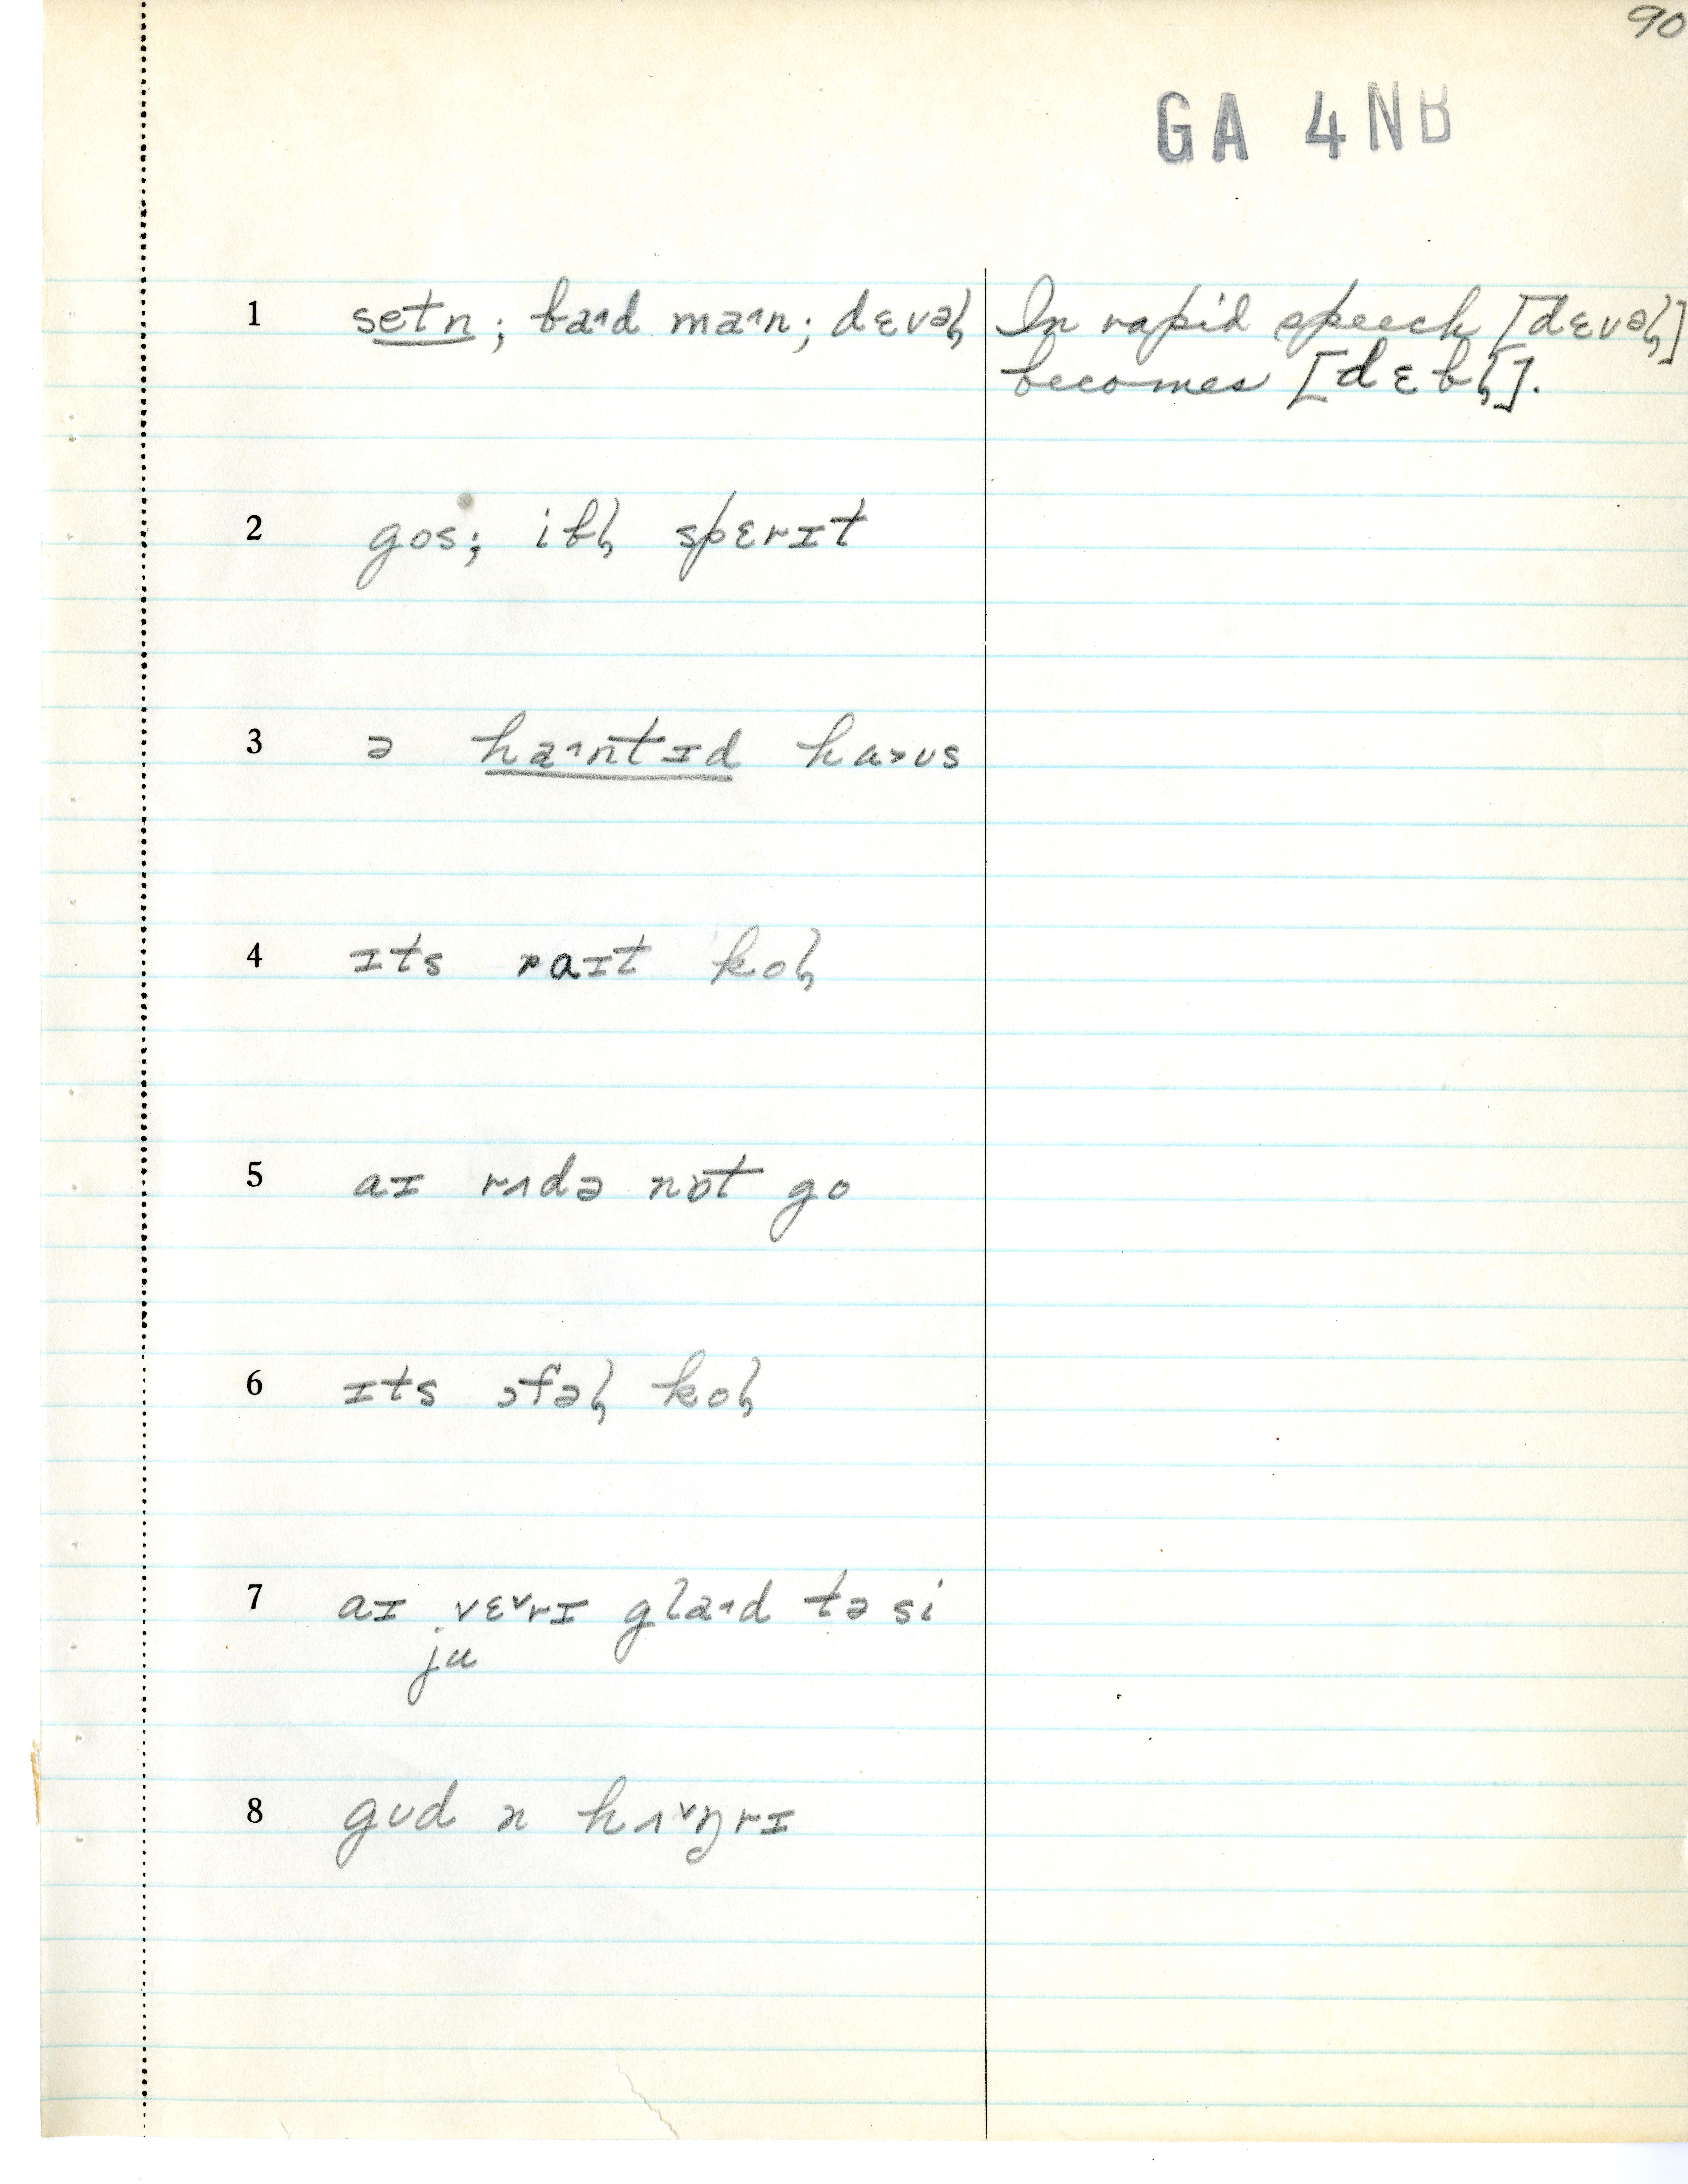 90
GA 4NB
1 setn; ba˄d ma˄n; dɛvəɫ̩ In rapid speech [dɛvəɫ̩]
becomes [dɛbɫ̩].
2 gos; ibɫ̩ spɛrɪt
3 ə ha˄ntɪd ha˃ʊs
4 ɪts raɪt koɫ̩
5 aɪ rʌdə nɒt go
6 ɪts ɔfəɫ̩ koɫ̩
7 aɪ vɛ˅rɪ gla˄d tə si
ju
8 gʊd n hʌ˅ŋrɪ